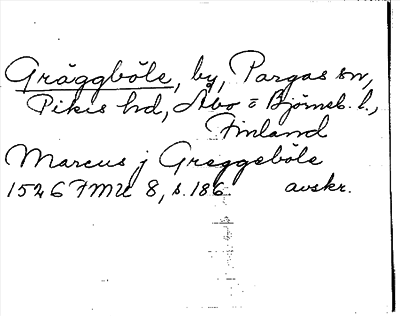 Gräggböle, by, Pargas sn,
Pikis hd, Åbo o Björneb. l.,
Finland
Marcus j Greggeböle
1546 FMU 8, s. 186. avskr.